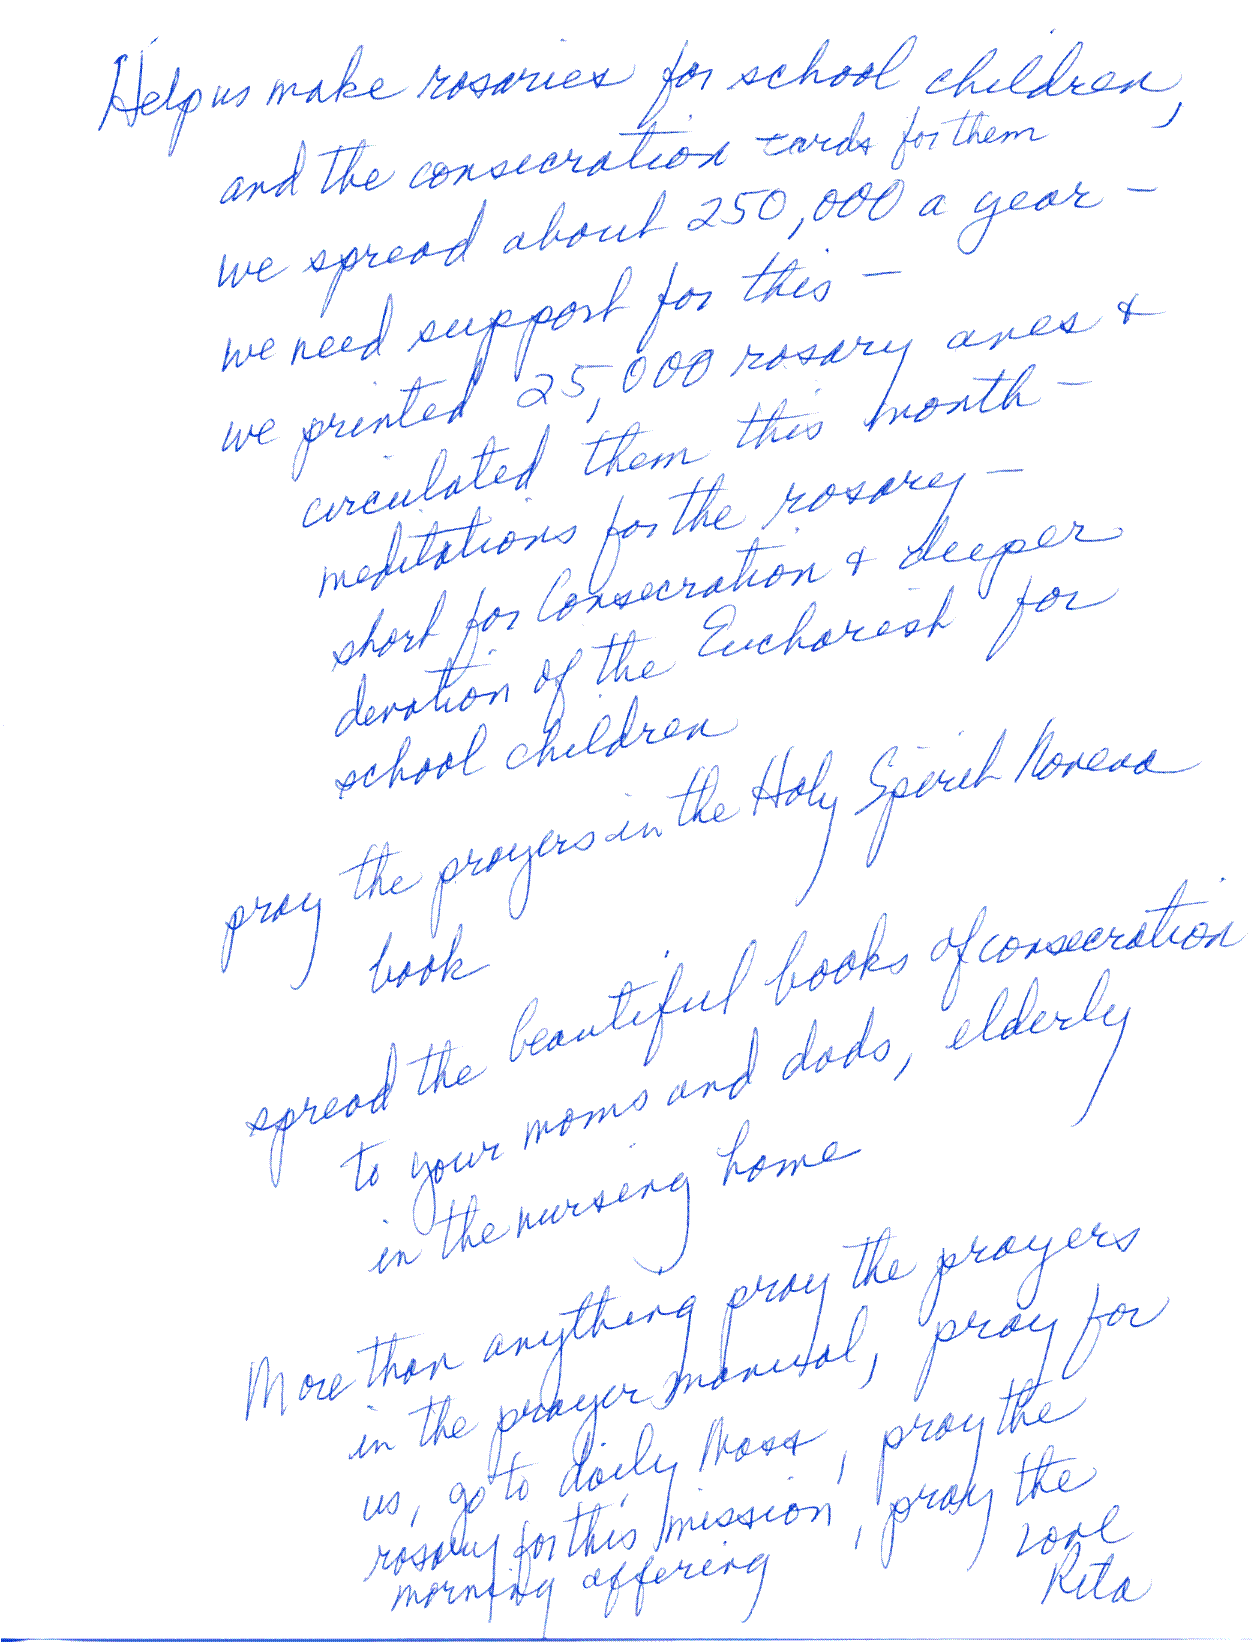 Help us make rosaries for school children,
and the consecration cards for them
we spread about 250,000 a year —
we need support for this —
we printed 25,000 rosary aves &
circulated them this month —
meditations for the rosary —
short for Consecration & deeper
devotion of the Eucharist for
school children
pray the prayers in the Holy Spirit Novena
book
spread the beautiful books of consecration
to your moms and dads, elderly
in the nursing home
More than anything pray the prayers
in the prayer manual, pray for
us, go to daily Mass, pray the
rosary for this mission, pray the
morning offering
love
Rita